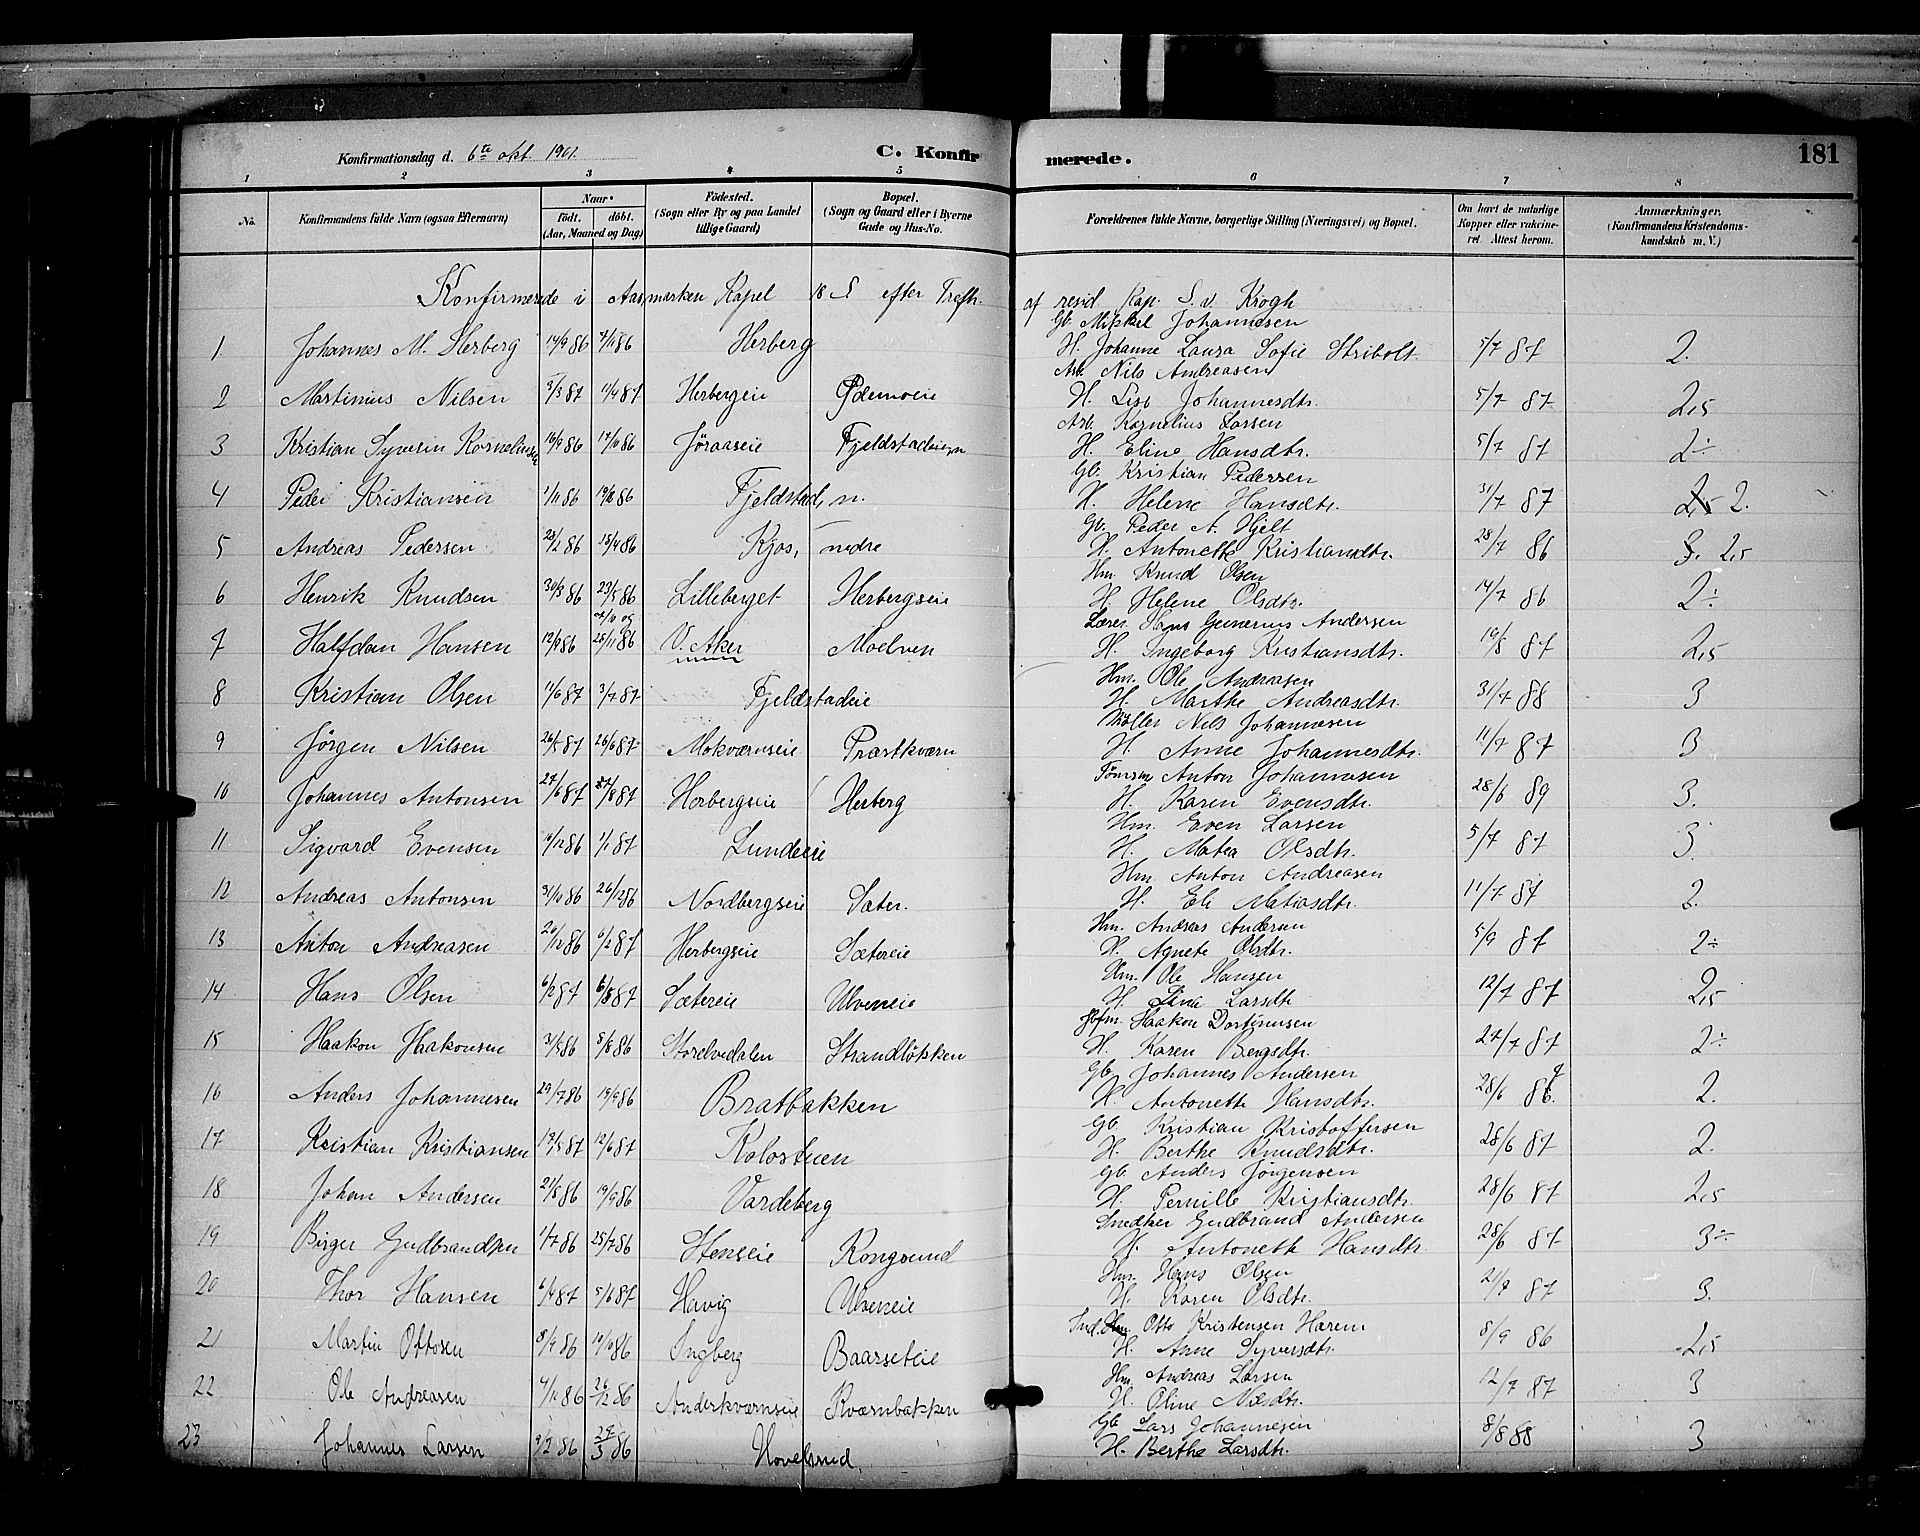 Konfirmationsdag d. 6te okt. 1901. C. Konfirmerede. 181
1 2 3 4 5 6 7 8
No. Konfirmandens fulde Navn (ogsaa Efternavn) Naar födt. döbt. (Aar, Maaned og Dag) Födested. (Sogn eller By og paa Landet tillige Gaard) Bopæl. (Sogn og Gaard eller i Byerne Gade og Hus-No. Forældrenes fulde Navne, borgerlige Stilling (Næringsvei) og Bopæl. Om havt de naturlige Kopper eller vakcineret. Attest herom. Anmærkninger. (Konfirmandens Kristendomskundskab m. V.)
Konfirmerede i Aasmarken Kapel 18 S. efter Trefh. af resid Kap. S. v. Krogh
Gb. Mikkel Johannesen
1 Johannes M. Herberg 14/9 86 7/11 86 Herberg H. Johanne Laura Sofie Stribolt 5/7 87 2.
Arb. Nils Andreasen
2 Martinius Nilsen 3/3 87 11/4 87 Herbergeie Ödemoeie H. Lise Johannesdtr. 5/7 87 2,5
Arb. Kornelius Larsen
3 Kristian Syversin Korneliussen 10/9 86 17/10 86 Jöraaseie Fjeldstadeie, n H. Eline Hansdtr. 5/7 87 2÷
Gb. Kristian Pedersen
4 Peder Kristiansen 1/11 86 Fjeldstad, n. H. Helene Hansdtr. 31/7 87 2,5 2.
Gb. Peder A. Hjelt
5 Andreas Pedersen 25/2 86 15/4 86 Kjos, nedre H. Antonette Kristiansdtr. 28/7 86 3. 2,5
Hm. Knud Olsen
6 Henrik Knudsen 30/3 86 23/5 86 Lilleberget Herbergseie H. Helene Olsdtr. 14/7 86 2÷
Lærer Hans Gunerius Andersen
7 Halfdan Hansen 12/9 86 24/10 og 28/11 86 V. Aker Moelven H. Ingeborg Kristiansdtr. 19/8 87 2,5
Hm. Ole Andreasen
8 Kristian Olsen 11/6 87 3/7 87 Fjeldstadeie H. Marthe Andreasdtr. 31/7 88 3
Möller Nils Johannesen
9 Jörgen Nilsen 26/5 87 26/6 87 Mokværnseie Præstkværn H. Anne Johannesdtr. 11/7 87 3
Tömrm Anton Johannesen
10 Johannes Antonsen 27/6 87 /8 87 Herbergseie Herberg H. Karen Evensdtr. 28/6 89 3.
Hm. Even Larsen
11 Sigvard Evensen 14/12 86 1/1 87 Lundeeie H. Matea Olsdtr. 5/7 87 3.
Hm. Anton Andreasen
12 Andreas Antonsen 31/10 86 26/12 86 Nordbergseie Sæter. H. Eli Matiasdtr. 11/7 87 2.
Hm. Andreas Andersen
13 Anton Andreasen 26/12 86 6/2 87 Herbergseie Sætereie H. Agnete Olsdtr. 5/9 87 2÷
Hm. Ole Hansen
14 Hans Olsen 6/2 87 Sætereie Ulveneie H. Lina Larsdtr 12/7 87 2,5
Haakon
15 Haakon Haakonsen 31/5 86 5/8 86 Storelvedalen Strandlökken H. Karen Bergsdtr. 27/7 87 2÷
Gb. Johannes Andersen
16 Anders Johannesen 29/7 86 19/9 86 Bratbakken H. Antonette Hansdtr. 28/6 87. 2.
Gb. Kristian Kristoffersen
17 Kristian Kristiansen 19/5 87 12/6 87 Kolostuen H. Berthe Knudsdtr. 28/6 87 2.
Gb. Anders Jörgensen
18 Johan Andersen 21/8 86 19/9 86 Vardeberg H. Pernille Kristiansdtr. 28/6 87 2,5
Snedker Gudbrand Andersen
19 Birger Gudbrandsen 1/7 86 25/7 86 Stenseie Kongsund H. Antonette Hansdtr 28/6 87 3÷
Hm. Hans Olsen
20 Thor Hansen 6/4 87 5/6 87 Havig Ulveneie H. Karen Olsdtr. 21/9 87 3.
Ind. Otto Kristensen Harem
21 Martin Ottosen 8/9 86 10/10 86 Ingberg Baarseteie H. Anne Syversdtr. 8/9 86 2,5
Hm. Andreas Larsen
22 Ole Andreasen 4/11 86 26/12 86 Anderkværnseie Kværnbakken H. Oline 12/7 87 3
Gb Lars Johannesen
23 Johannes Larsen 9/2 86 29/3 86 Hovelsrud H. Berthe Larsdtr. 8/8 88 3